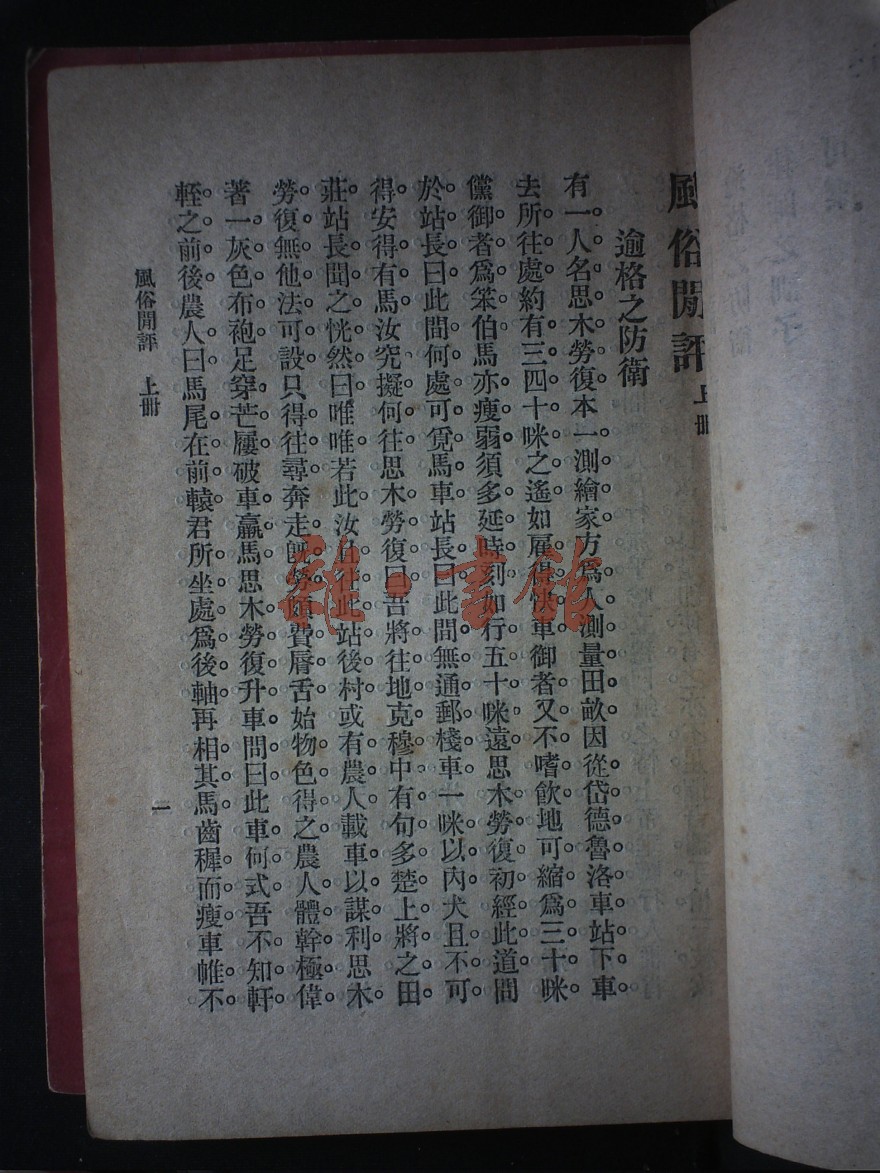 風俗閒評 上冊
逾格之防衛
有一人名思木勞復本一測繪家方爲人測量田畝因從岱德魯洛車站下車。
去所往處約有三四十咪之遙如雇得快車御者又不嗜飲地可縮爲三十咪。
儻御者爲笨伯馬亦瘦弱須多延時刻如行五十咪遠思木勞復初經此道問
於站長曰此間何處可覓馬車站長曰此間無通郵棧車一咪以內犬且不可
得安得有馬汝究擬何往思木勞復曰吾將往地克穆中有句多楚上將之田
莊站長聞之恍然曰唯唯若此汝且往此站後村或有農人載車以謀利思木
勞復無他法可設只得往尋奔走既勞頗費脣舌始物色得之農人體幹極偉
著一灰色布袍足穿芒屨破車羸馬思木勞復升車問曰此車何式吾不知軒
輊之前後農人曰馬尾在前轅君所坐處爲後軸再相其馬齒穉而瘦車帷不
風俗閒評 上冊
一
雜·書館